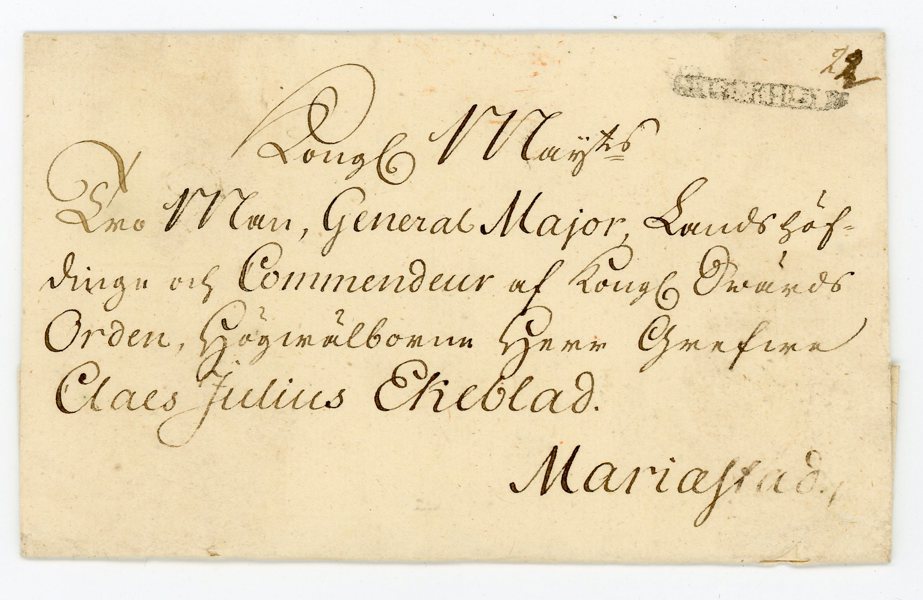 22
Kongl Maÿts
Tro Man, General Major, Landshöf-
dinge och Commendeur af Kongl Swärds
Orden, Högwälborne Herr Grefwe
Claes Julius Ekeblad.
Mariæstad.